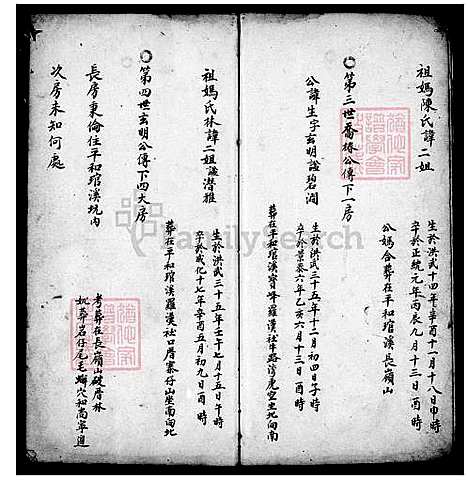 祖媽陳氏諱二姐
生於洪武十四年辛酉十一月十八日申時
卒於正統元年丙辰九月十三日酉時
公媽合葬在平和琯溪長嶺山
第三世喬椿公傳下一房
公諱生字玄明謚碧澗
生於洪武三十五年十二月初四日子時
卒於景泰六年乙亥六月十三日時
葬在平和琯溪寶峰羅漢社牛路湾虎空坐北向南
祖媽氏林諱二姐謚潜雅
生於洪武三十五年壬午七月十五日午時
卒於成化十七年辛丑五月初九日酉時
葬在平和琯溪羅漢社口厝寨仔山坐南向北
第四世玄明公傳下四大房
長房東倫住平和琯溪坑内
考葬在長嶺山破厝林
妣葬岩仔尾毛蠏穴和尚寧道
次房未知何處
FamilySearch